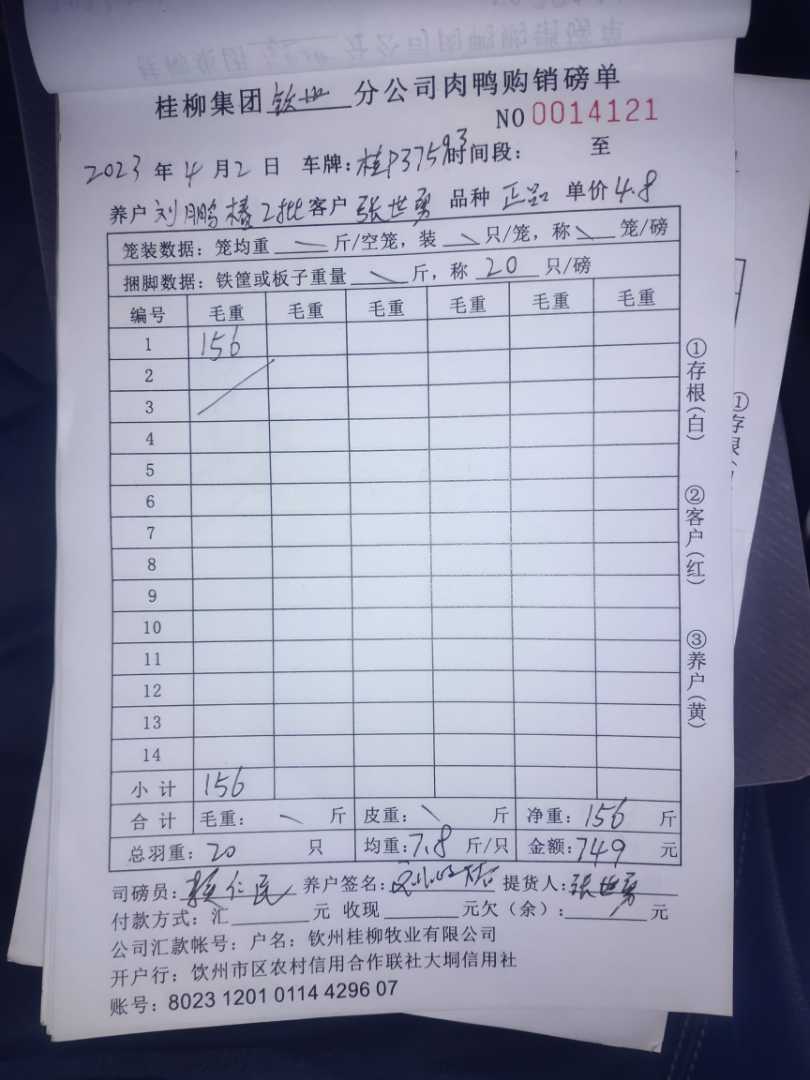 桂柳集团 钦州 分公司肉鸭购销磅单
NO 0014121
2023 年 4 月 2 日 车牌：桂P37593 时间段： 至
养户 刘鹏 2批 客户 张世勇 品种 正品 单价 4.8
笼装数据：笼均重 斤/空笼，装 只/笼，称 笼/磅
捆脚数据：铁筐或板子重量 斤，称 20 只/磅
编号 毛重 毛重 毛重 毛重 毛重 毛重
1 156
2
3
4
5
6
7
8
9
10
11
12
13
14
小计 156
合计 毛重： 斤 皮重： 斤 净重：156 斤
总羽重：20 只 均重：7.8 斤/只 金额：749 元
司磅员： 仁民 养户签名： 提货人：张世勇
付款方式：汇 元 收现 元欠（余）： 元
公司汇款帐号：户名：钦州桂柳牧业有限公司
开户行：饮州市区农村信用合作联社大垌信用社
账号：8023 1201 0114 4296 07
①存根（白）
②客户（红）
③养户（黄）